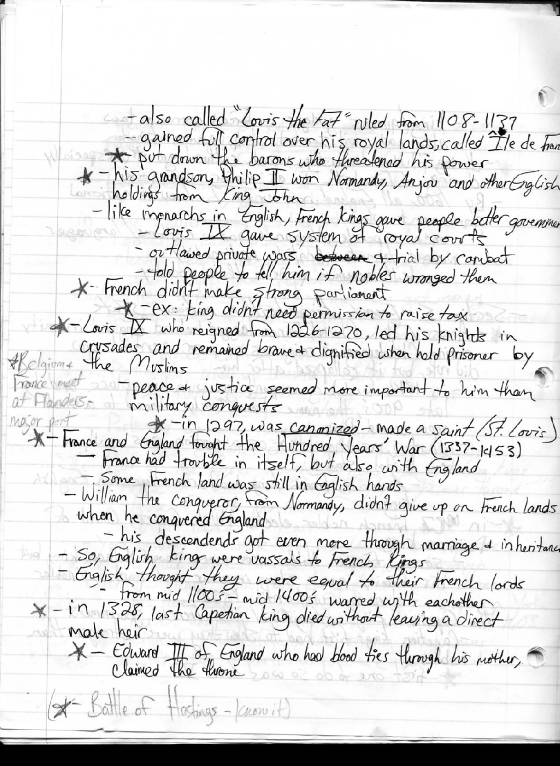 - also called "Louis the Fat" ruled from 1108-1137
- gained full control over his royal lands, called Île de Fran
* - put down the barons who threatened his power
* - his grandson, Philip II won Normandy, Anjou and other English
holdings from King John
- like monarchs in English, French kings gave people better governmen
- Louis IX gave system of royal courts
- outlawed private wars & trial by combat
- told people to tell him if nobles wronged them
* - French didn't make strong parliament
* - ex: king didn't need permission to raise tax
* - Louis IX who reigned from 1226-1270, led his knights in
crusades and remained brave & dignified when held prisoner by
the Muslims
* Belgium &
France meet
at Flanders -
major port
- peace & justice seemed more important to him than
military conquests
* - in 1297, was canonized - made a saint (St. Louis)
* - France and England fought the Hundred Years' War (1337-1453)
- France had trouble in itself, but also with England
- Some French land was still in English hands
- William the conqueror, from Normandy, didn't give up on French lands
when he conquered England
- his descendents got even more through marriage & inheritance
- So, English king were vassals to French Kings
- English thought they were equal to their French lords
- from mid 1100s - mid 1400s warred with eachother
* - in 1328, last Capetian king died without leaving a direct
male heir
* - Edward III of England who had blood ties through his mother,
claimed the throne
(* - Battle of Hastings - (know it)